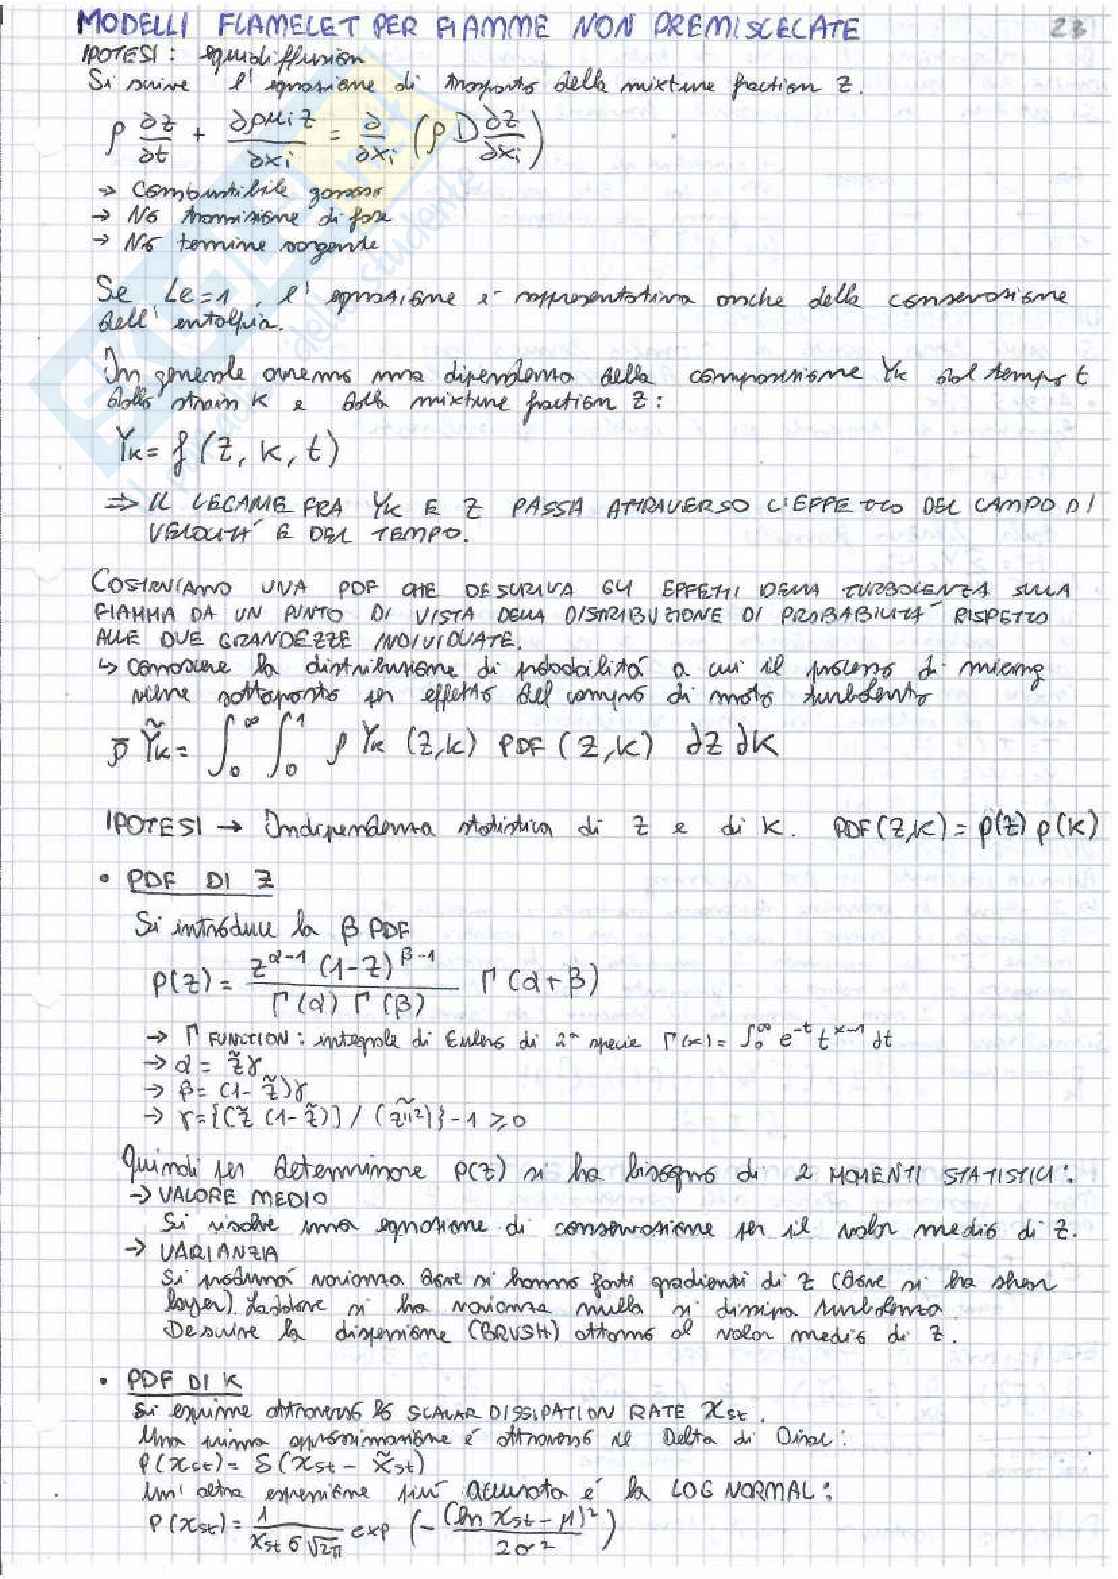 MODELLI FLAMELET PER FIAMME NON PREMISCELATE 23
IPOTESI: equidiffusion
Si scrive l'equazione di trasporto della mixture fraction Z.
ρ ∂z/∂t + ∂ρu_i z/∂x_i = ∂/∂x_i (ρD ∂z/∂x_i)
→ Combustibile gassoso
→ No transizione di fase
→ No termine sorgente
Se Le=1, l'equazione è rappresentativa anche della conservazione
dell'entalpia.
In generale avremo una dipendenza della composizione Yk dal tempo t
dallo strain K e dalla mixture fraction Z:
Yk = f(Z, K, t)
⇒ IL LEGAME FRA Yk E Z PASSA ATTRAVERSO L'EFFETTO DEL CAMPO DI
VELOCITÀ E DEL TEMPO.
COSTRUIAMO UNA PDF CHE DESCRIVA GLI EFFETTI DELLA TURBOLENZA SULLA
FIAMMA DA UN PUNTO DI VISTA DELLA DISTRIBUZIONE DI PROBABILITÀ RISPETTO
ALLE DUE GRANDEZZE INDIVIDUATE.
↳ conoscere la distribuzione di probabilità a cui il processo di mixing
viene sottoposto per effetto del campo di moto turbolento
ρ̄ Ỹk = ∫₀^∞ ∫₀^1 ρ Yk (Z,k) PDF (Z,k) dZ dK
IPOTESI → Indipendenza statistica di Z e di K. PDF(Z,K) = p(Z) p(K)
• PDF DI Z
Si introduce la β PDF
P(Z) = z^(α-1) (1-Z)^(β-1) / Γ(α) Γ(β) Γ(α+β)
→ Γ FUNCTION: integrale di Eulero di 2ª specie Γ(x) = ∫₀^∞ e^(-t) t^(x-1) dt
→ α = z̃γ
→ β = (1-z̃)γ
→ γ = {[z̃ (1-z̃)] / (z̃''²)} - 1 ≥ 0
Quindi per determinare P(Z) si ha bisogno di 2 MOMENTI STATISTICI:
→ VALORE MEDIO
Si risolve una equazione di conservazione per il valor medio di Z.
→ VARIANZA
Si produrrà varianza dove si hanno forti gradienti di Z (dove si ha shear
layer). Laddove si ha varianza nulla si dissipa turbolenza
Descrive la dispersione (BRUSH) attorno al valor medio di Z.
• PDF DI K
Si esprime attraverso lo SCALAR DISSIPATION RATE χst.
Una prima approssimazione è attraverso il Delta di Dirac:
P(χst) = δ(χst - χ̃st)
Un'altra espressione più accurata è la LOG NORMAL:
P(χst) = 1/(χst σ √2π) exp (-(ln χst - μ)²/2σ²)